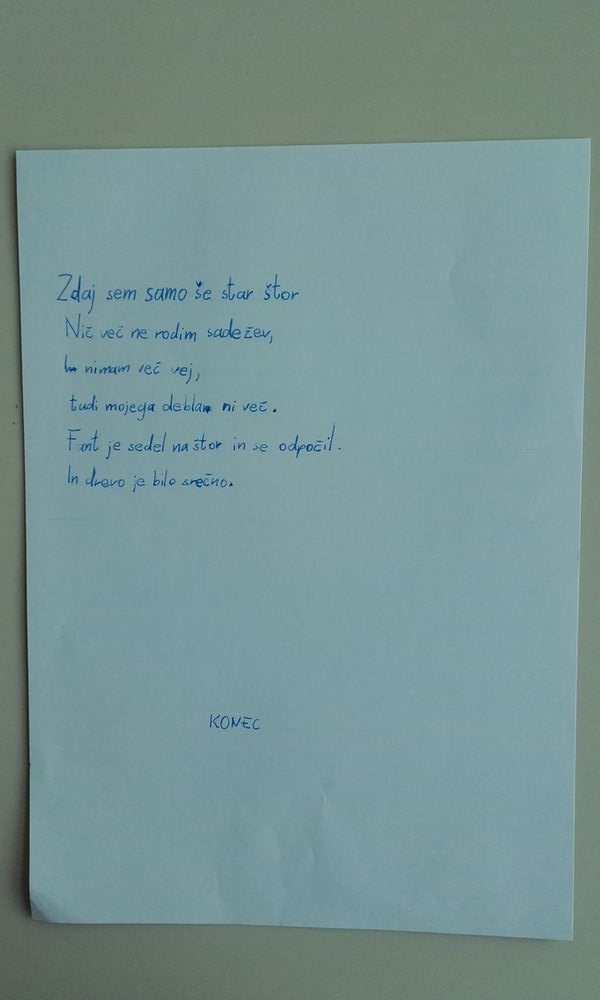 Zdaj sem samo še star štor
Nič več ne rodim sadežev,
nimam več vej,
tudi mojega debla ni več.
Fant je sedel na štor in se odpočil.
In drevo je bilo srečno.
KONEC